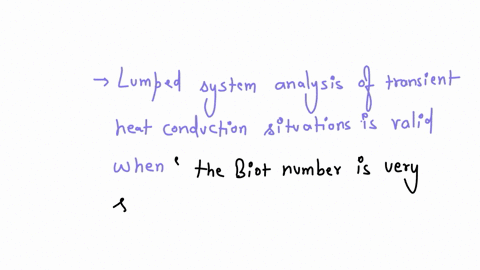 → Lumped system analysis of transient
heat conduction situations is valid
when ' the Biot number is very
s